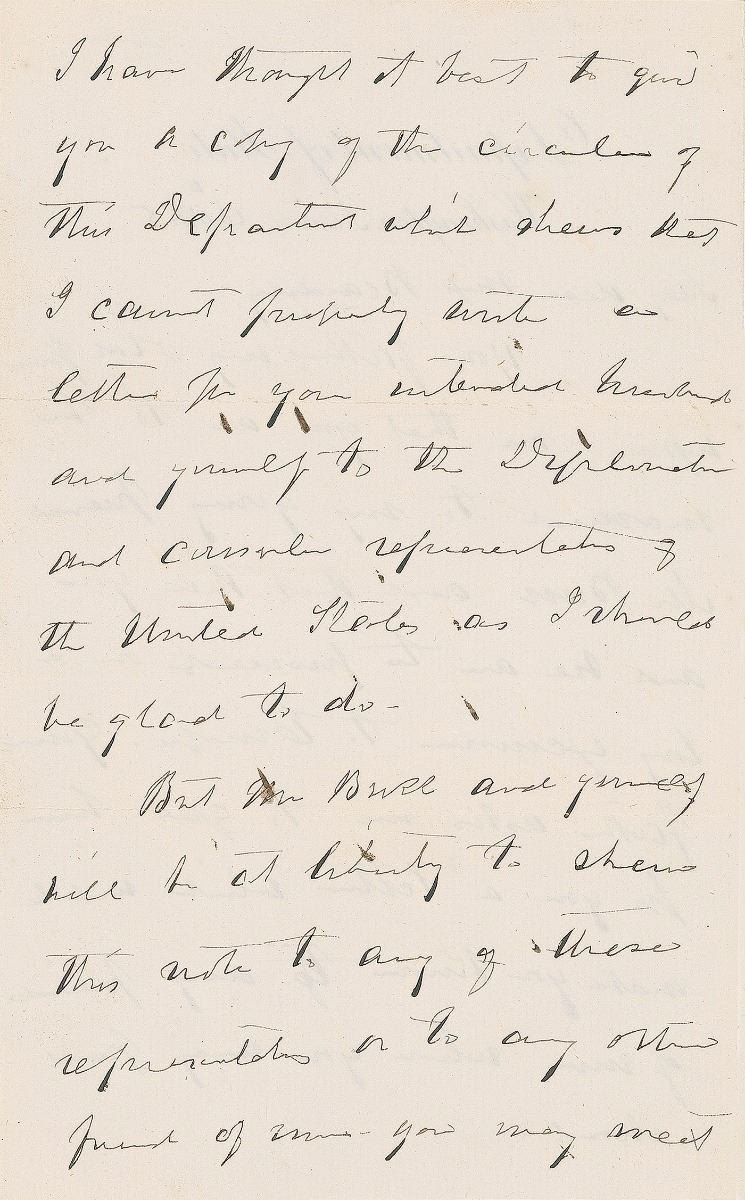 I have thought it best to give
you a copy of the circular of
this Department which shews that
I cannot properly write a
letter for your intended husband
and yourself to the Diplomatic
and consular representatives of
the United States as I should
be glad to do -
But Mr Bull and yourself
will be at liberty to shew
this note to any of these
representatives or to any other
friend of mine you may meet